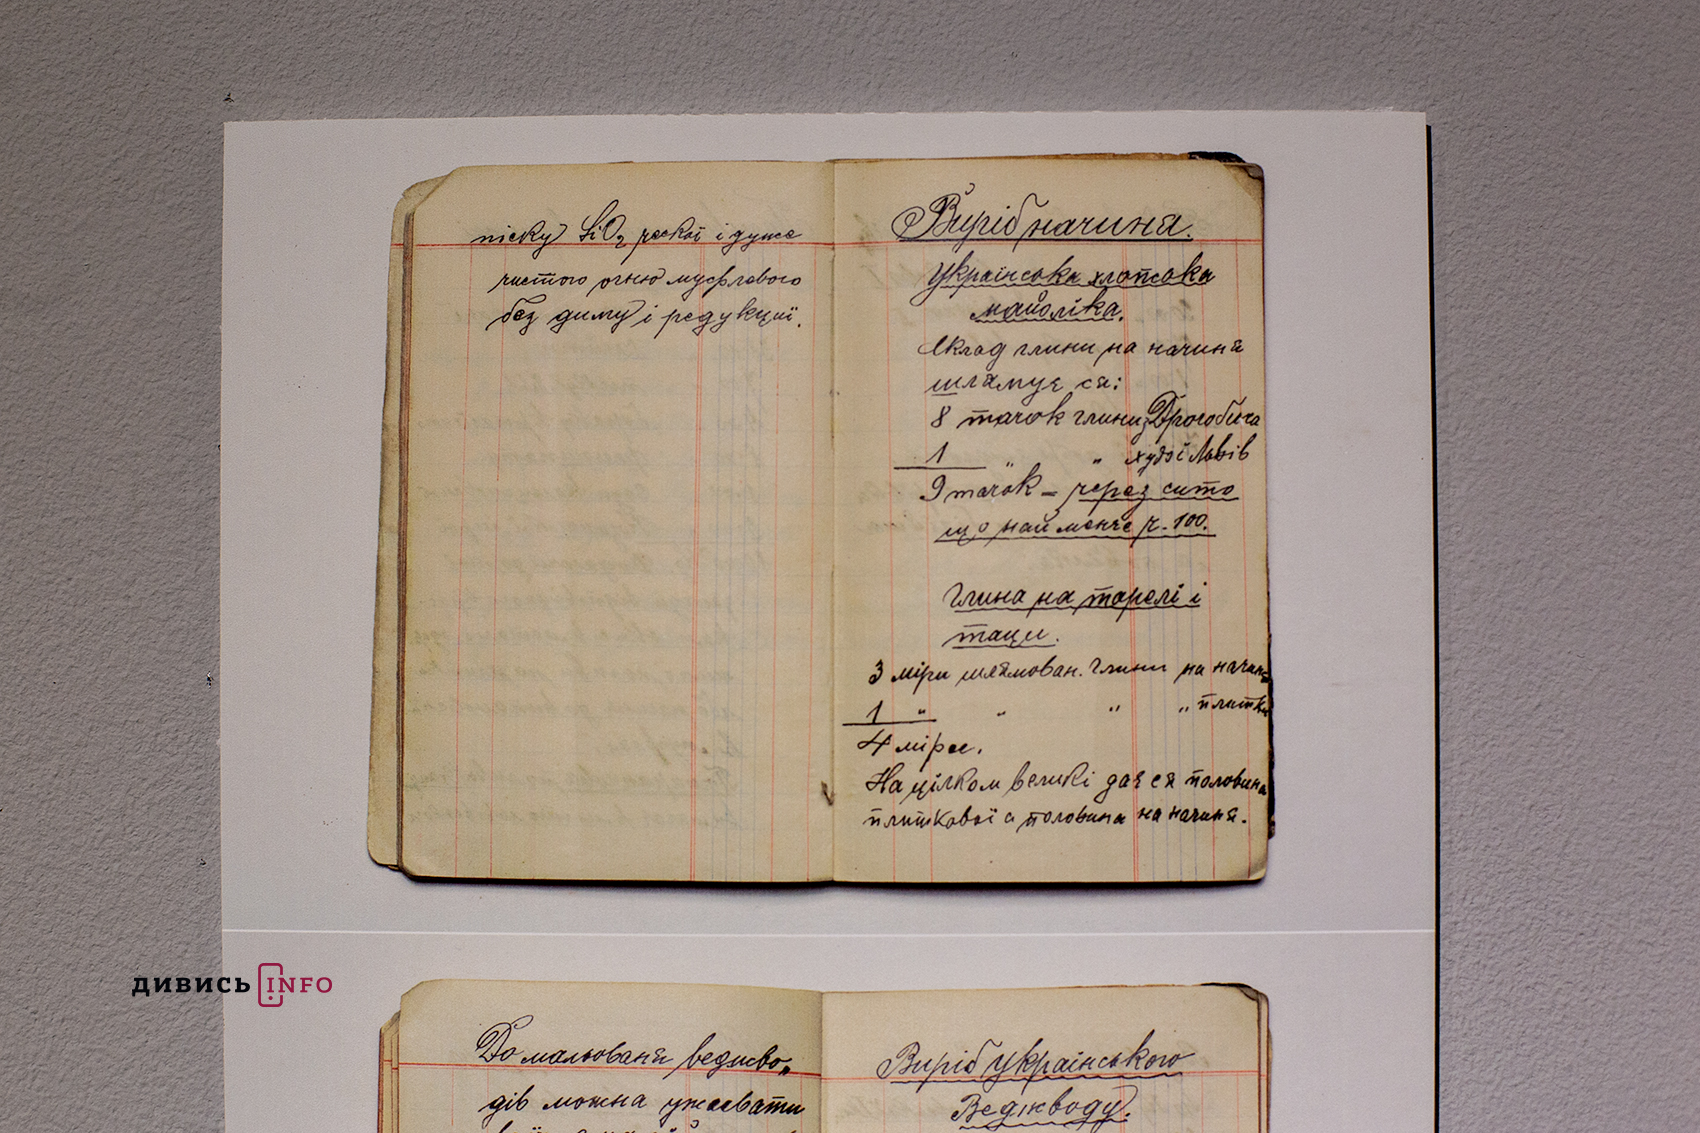 піску SiO₂ ческої і дуже
чистого огню муфлевого
без диму і редукциї.
Виріб начиня.
Українська хлопска
майоліка.
Склад глини на начиня
шлямує ся:
8 тачок глини з Дрогобича
1 " " худої Львів
9 тачок – через сито
що найменче ч. 100.
Глина на тарелі і
таци.
3 міри шлямован. глини на начиня
1 " " " " плитки
4 міри.
На цілком великі дає ся половина
плиткової а половина на начиня.
ДИВИСЬ INFO
До мальованя веджво„
дів можна уживати
Виріб українського
Веджводу.